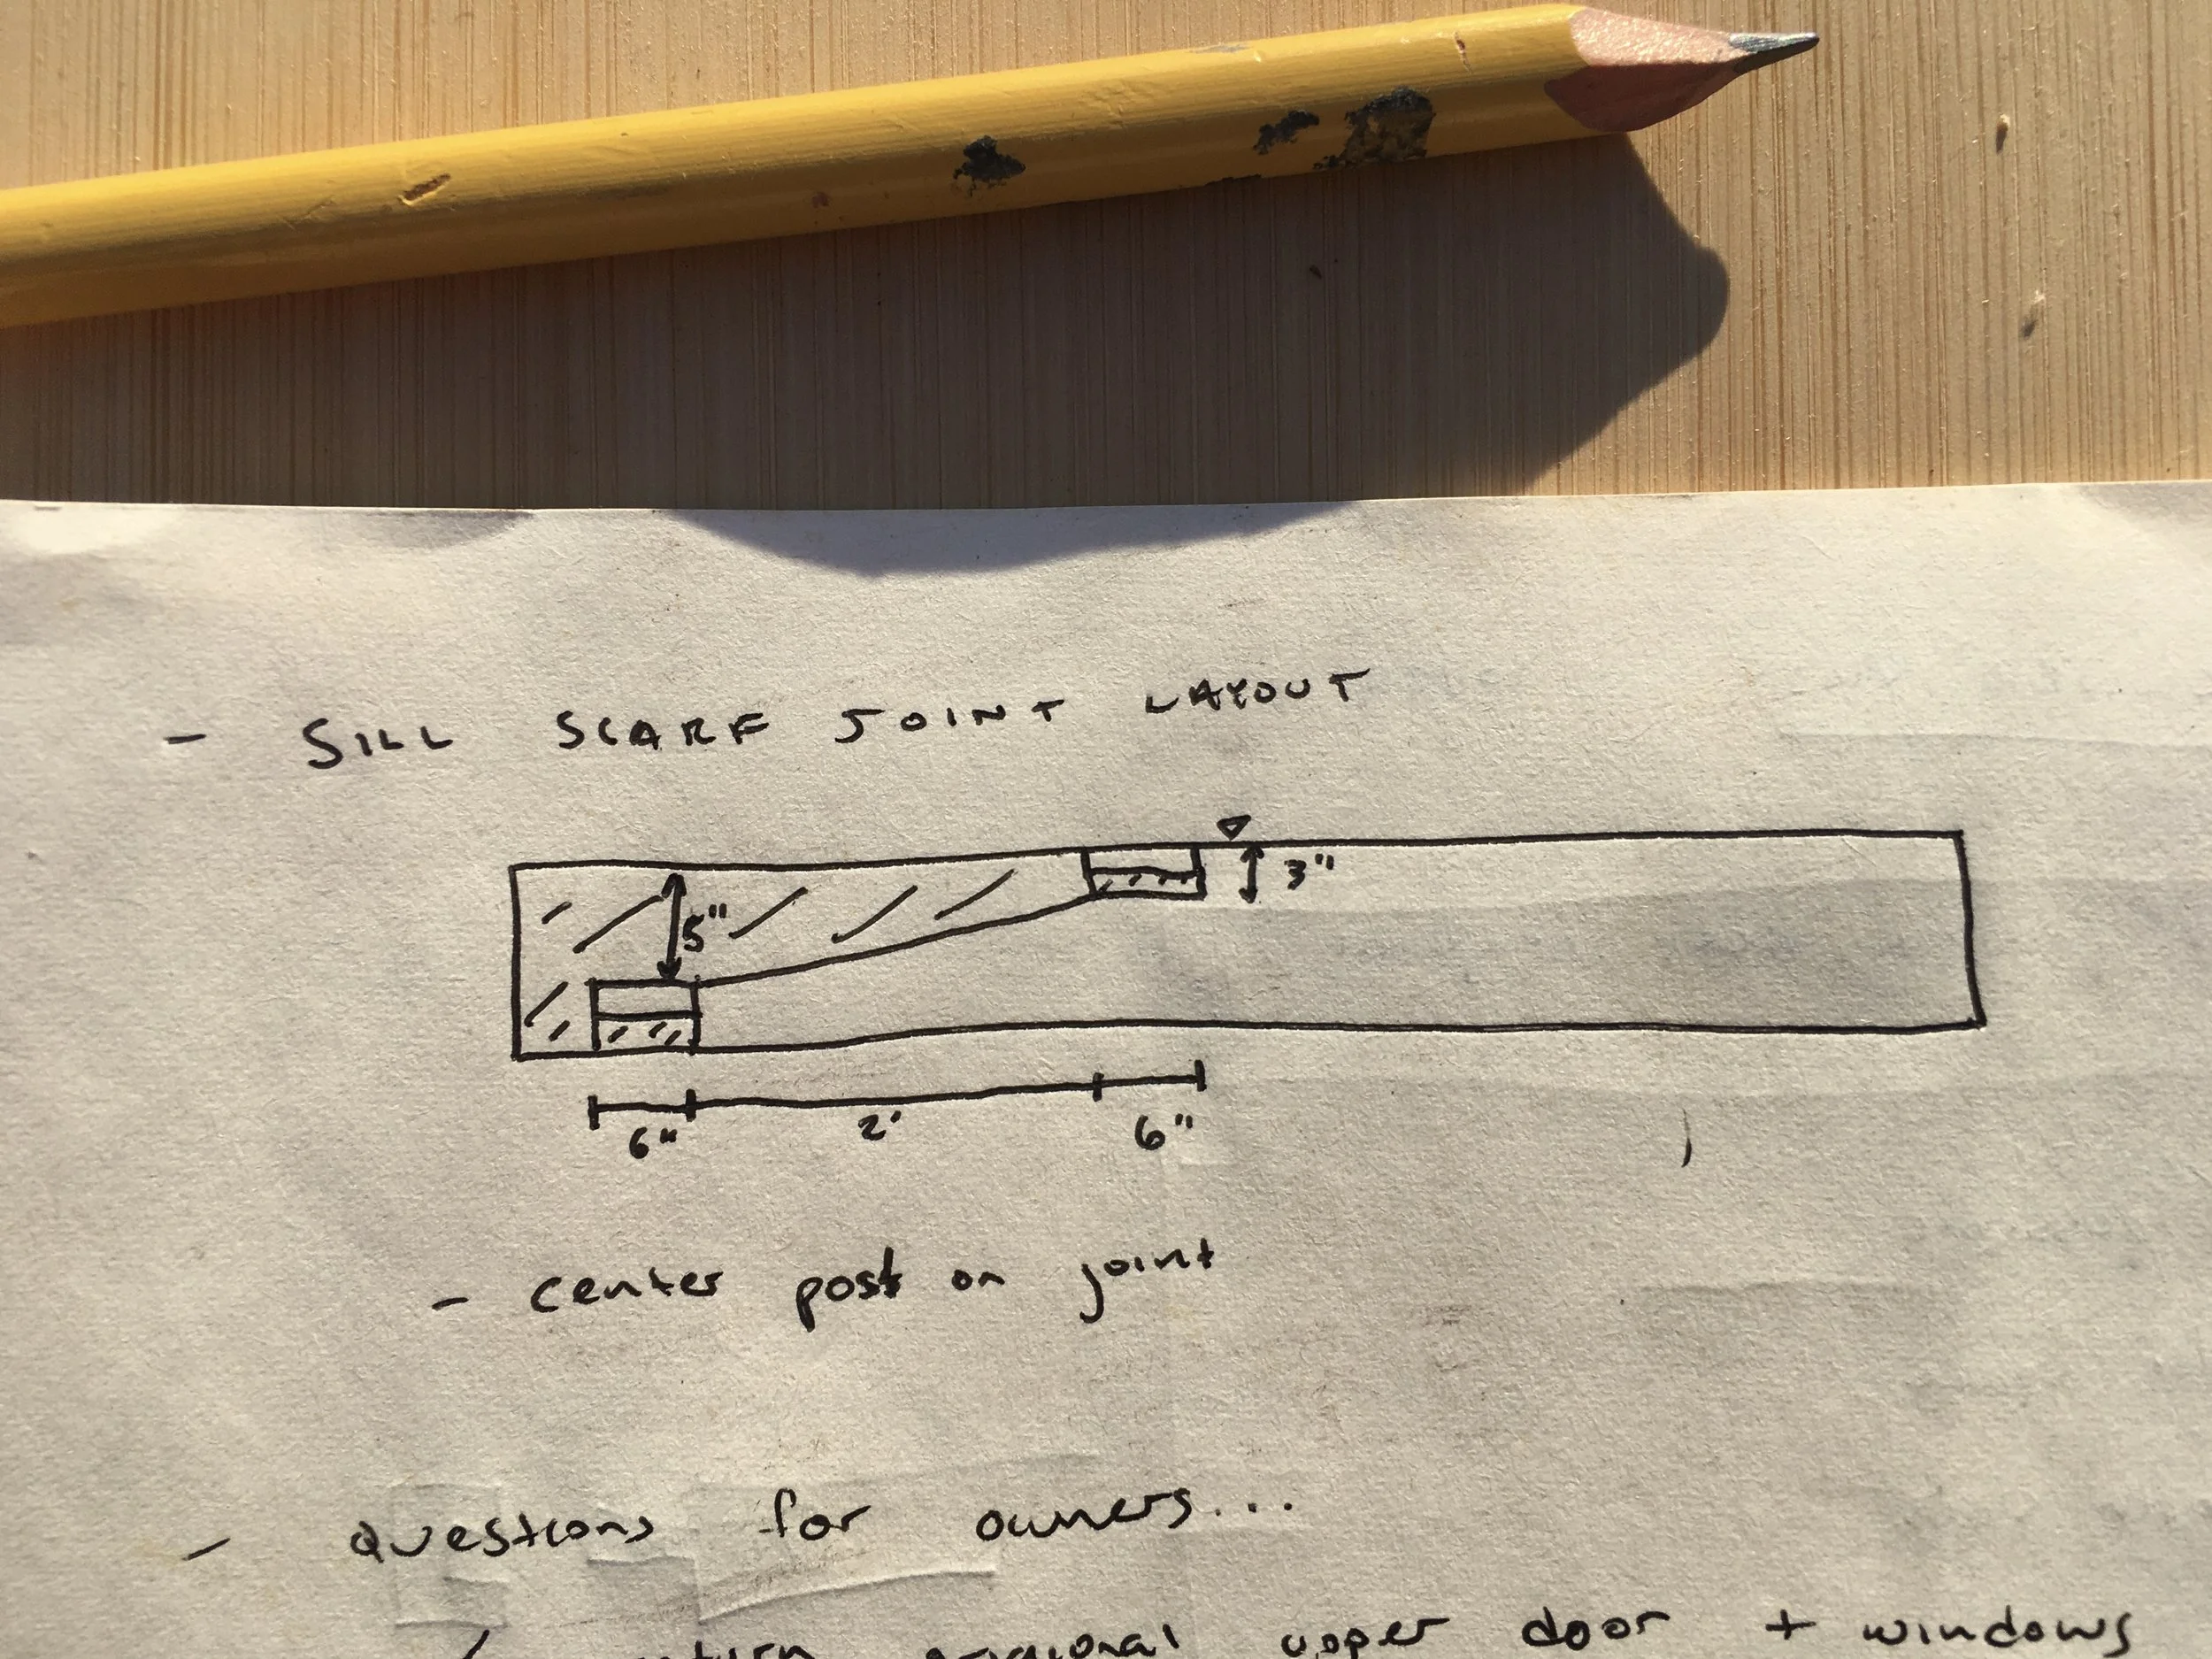 - SILL SCARF JOINT LAYOUT
3"
5"
6" 2' 6"
- center post on joint
- questions for owners...
upper door + windows